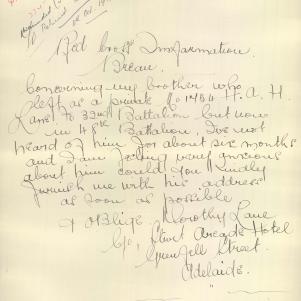 Red Cross Information
Breau.
Concerning my brother who
left as a private No 1484 H. A. H.
Lane to 32nd Battalion but now
in 48th Battalion. I've not
heard of him for about six months
and I am feeling very anxious
about him could you Kindly
furnish me with his address
as soon as possible
& oblige Dorothy Lane
C/o, Stuart Arcade Hotel
Grenfell Street.
Adelaide.